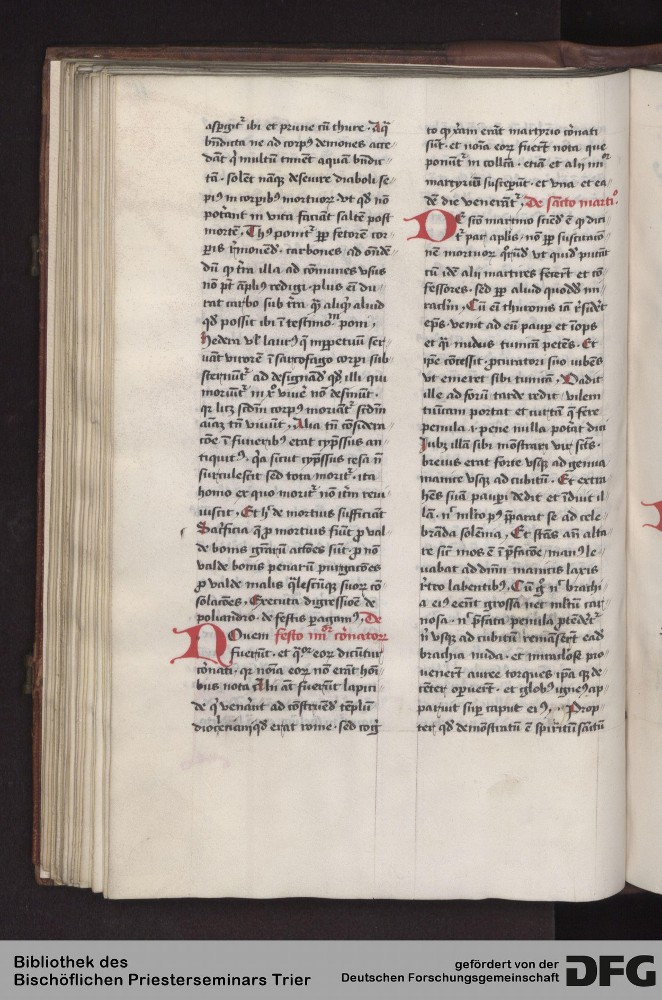 aspgit᷑ ibi et prune cū thure · Aq̄
bn̄dicta ne ad corpꝰ demones acce
dāt qͥ multū timēt aquā bn̄dic
tā · solēt nāqꝫ deseuire diaboli se
piꝰ in corpibꝰ mortuoꝝ · vt qd̓ nō
potāt in vita faciāt saltē post
mortē, Thꝰ ponit᷑ ꝓp̄ fetorē cor
ꝑis r̓mouēd̓ · carbones ad on̄dē
dū ꝙ t̓ra illa ad cōmunes vsus
nō pt̄ āpliꝰ redigi · plus eī du
rat carbo sub t̓ra q̄ͣ aliqͥ aliud
qd̓ possit ibi ī testimo͞m poni,
hedera vl̓ laurꝰ q̄ inꝑpetuū ser
uāt virorē ī sarcofago corꝑi sub
sternūt᷑ ad designād̓ qd̓ illi qui
moriūt᷑ in xͦ viuē nō desinūt ·
qꝛ licꝫ scd̓m corpꝰ moriāt᷑ scd̓m
aīaꝫ tn̄ viuūt, Alia tn̄ cōsidera
cōe ī funeribꝰ erat cypssus an
tiquitꝰ, qͥa sicut cypssus cesa nō
suculescit sed tota morit᷑ · ita
homo ex quo morit᷑ nō itm̄ reui
uiscit, Et h̓ de mortuis sufficiāt
Sacrificia q̄ ꝓ mortuis fiūt ꝓ val
de bonis gr̄aꝝ actōes sūt · ꝓ nō
valde bonis penaꝝ purgacōes
ꝓ valde malis qͣlescūqꝫ viuoꝝ cō
solacōes, Executa digressiōe de
poliandro · de festis ꝑagamꝰ, De
NOuem festo iiiioꝝ c̓onatoꝝ
fuerūt · et qͦꝛ eoꝝ dicūtur
c̓onati · qꝛ noīa eoꝝ nō erāt hoī
bus nota Alii āt fuerūt lapici
de qͥ venāt ad cōstruēd̓ tēplū
dioc̓eciani qd̓ erat rome · sed cog̓
to ꝙ xp̄iani erāt martyrio c̓onati
sūt · et noīa eoꝝ fuer̄t nota que
ponūt᷑ in coll̓ca · etiā et alii iiiior
martyriū susceꝑūt · et vna et ea
dē die venerāt᷑, De sācto marti͡o
DE scō martino sciēd̓ ē ꝙ dici
t᷑ par apl̓is · nō ꝓp̄ suscitacō
nē mortuoꝝ qͥnd̓ vt quidā putāt
cū idē alii martires fecer̄t et cō
fessores · sed ꝓp̄ aliud quoddā mi
raclm̄, Cū eī thuronis iā r̓sidēt
ep̄s · venit ad eū paup et īops
et qͣi nudus tunicā petēs · Et
ip̄e cōcessit ꝓcuratori suo iubēs
vt emeret sibi tunicā, Vadit
ille ad foꝝ tarde redit · vilem
tunicam portat et curtā q̄ fere
penula ·ı· pene nulla potāt dici
Iubꝫ illā sibi mōstrari vir scūs ·
breuis erat forte vsqꝫ ad genua
manice vsqꝫ ad cubitū · Et extra
hēs suā paupi dedit et īduit il
lā · nͨ ml̓to pꝰ ꝑparat se ad cele
brāda solēnia, Et stās an̄ alta
re sic̄ mos ē ī p̄facōe · manꝰ le
uabat ad dn̄m manicis laxis
r̓tro labentibꝰ, Cū g͛ nͨ brachi
a eiꝰ eēnt grossa nec ml̓tū car
nosa · nͨ p̄fata penula ꝓtēder̄t᷑
nͨ vsqꝫ ad cubitū remāser̄t eadē
brachia nuda · et miraclōse pro
vener̄t auree torques ip̄a qꝫ de
cēter opuer̄t · et globꝰ igneꝰ ap
paruit suꝑ caput eiꝰ, · Prop
ter qd̓ demōstratū ē spiritū sāctū
Bibliothek des
Bischöflichen Priesterseminars Trier
gefördert von der
Deutschen Forschungsgemeinschaft
DFG